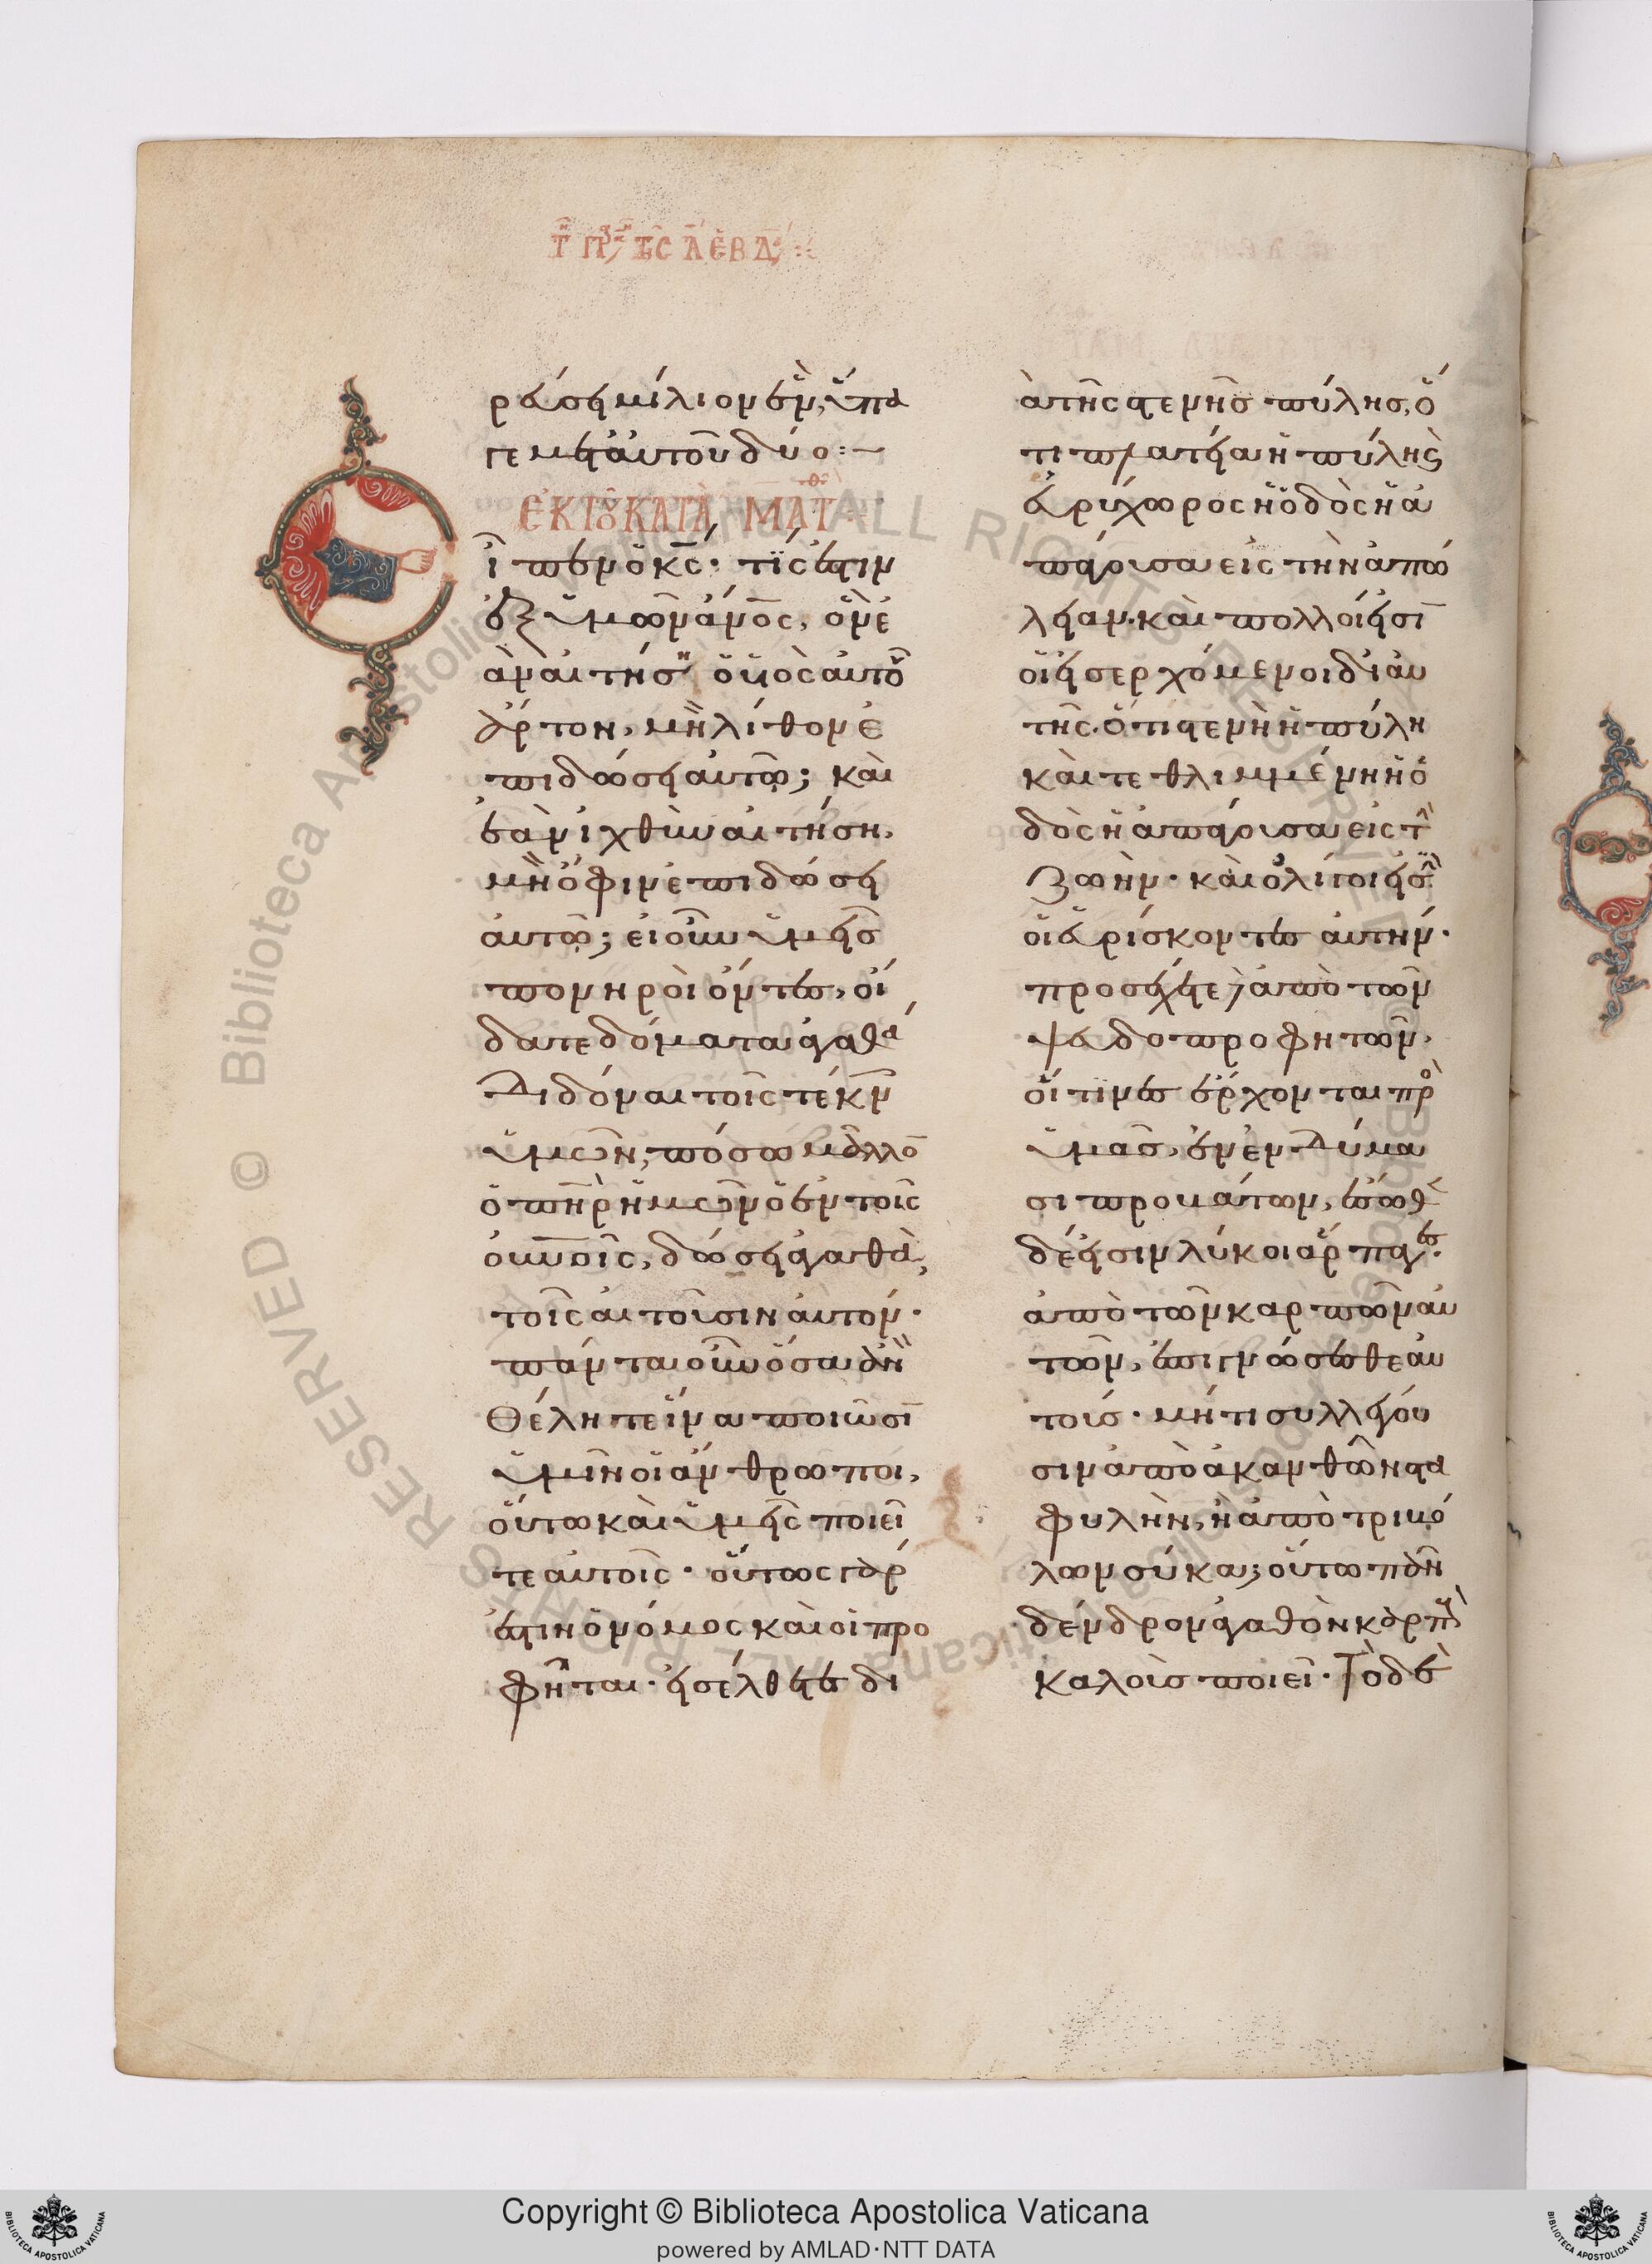 τῆ παρασ τῆς α ἑβδ
ρεύσει μίλιον ἕν, ὕπα
γε μετ αὐτοῦ δύο:
ἐκ τοῦ κατὰ Ματθ
ἶπεν ὁ κς· τίς ἐστιν
ἐξ ὑμῶν ἄνος, ὃν ἐ
ὰν αἰτήση ὁ υἱὸς αὐτοῦ
ἄρτον, μὴ λίθον ἐ
πιδώσει αὐτῶ; καὶ
ἐὰν ἰχθὺν αἰτήση,
μὴ ὄφιν ἐπιδώσει
αὐτῶ; εἰ οὖν ὑμεῖς
πονηροὶ ὄντες, οἴ
δατε δόματα ἀγαθὰ
διδόναι τοῖς τέκν
ὑμῶν, πόσω μᾶλλο
ὁ πηρ ἡμῶν ὁ ἐν τοῖς
οὐνοῖς, δώσει ἀγαθὰ,
τοῖς αἰτοῦσιν αὐτόν·
πάντα οὖν ὅσα ἂν
θέλητε ἵνα ποιῶσι
ὑμῖν οἱ ἄνθρωποι,
οὕτω καὶ ὑμεῖς ποιεῖ
τε αὐτοῖς· οὕτως γάρ
ἐστιν ὁ νόμος καὶ οἱ προ
φῆται· εἰσέλθετε δι
ὰ τῆς στενῆς πύλης, ὅ
τι πλατεῖα ἡ πύλη κς
εὐρύχωρος ἡ ὁδὸς ἡ ἀ
πάγουσα εἰς τὴν ἀπώ
λειαν· καὶ πολλοί εἰσι
οἱ εἰσερχόμενοι δι αὐ
τῆς· ὅτι στενὴ ἡ πύλη
καὶ τεθλιμμένη ἡ ὁ
δὸς ἡ ἀπάγουσα εἰς τὴν
ζωὴν· καὶ ὀλίγοι εἰσὶν
οἱ εὑρίσκοντες αὐτήν·
προσέχετε ἀπὸ τῶν
ψευδοπροφητῶν,
οἵτινες ἔρχονται πρὸ
ὑμᾶς, ἐν ἐνδύμα
σι προβάτων, ἔσωθ
δέ εἰσιν λύκοι ἅρπαγες·
ἀπὸ τῶν καρπῶν αὐ
τῶν, ἐπιγνώσεσθε αὐ
τούς· μήτι συλλέγου
σιν ἀπὸ ἀκανθῶν στα
φυλὴν, ἢ ἀπὸ τριβό
λων σύκα; οὕτω πᾶν
δένδρον ἀγαθὸν καρποὺ
καλοὺς ποιεῖ· Τὸ δὲ
Copyright © Biblioteca Apostolica Vaticana
powered by AMLAD·NTT DATA